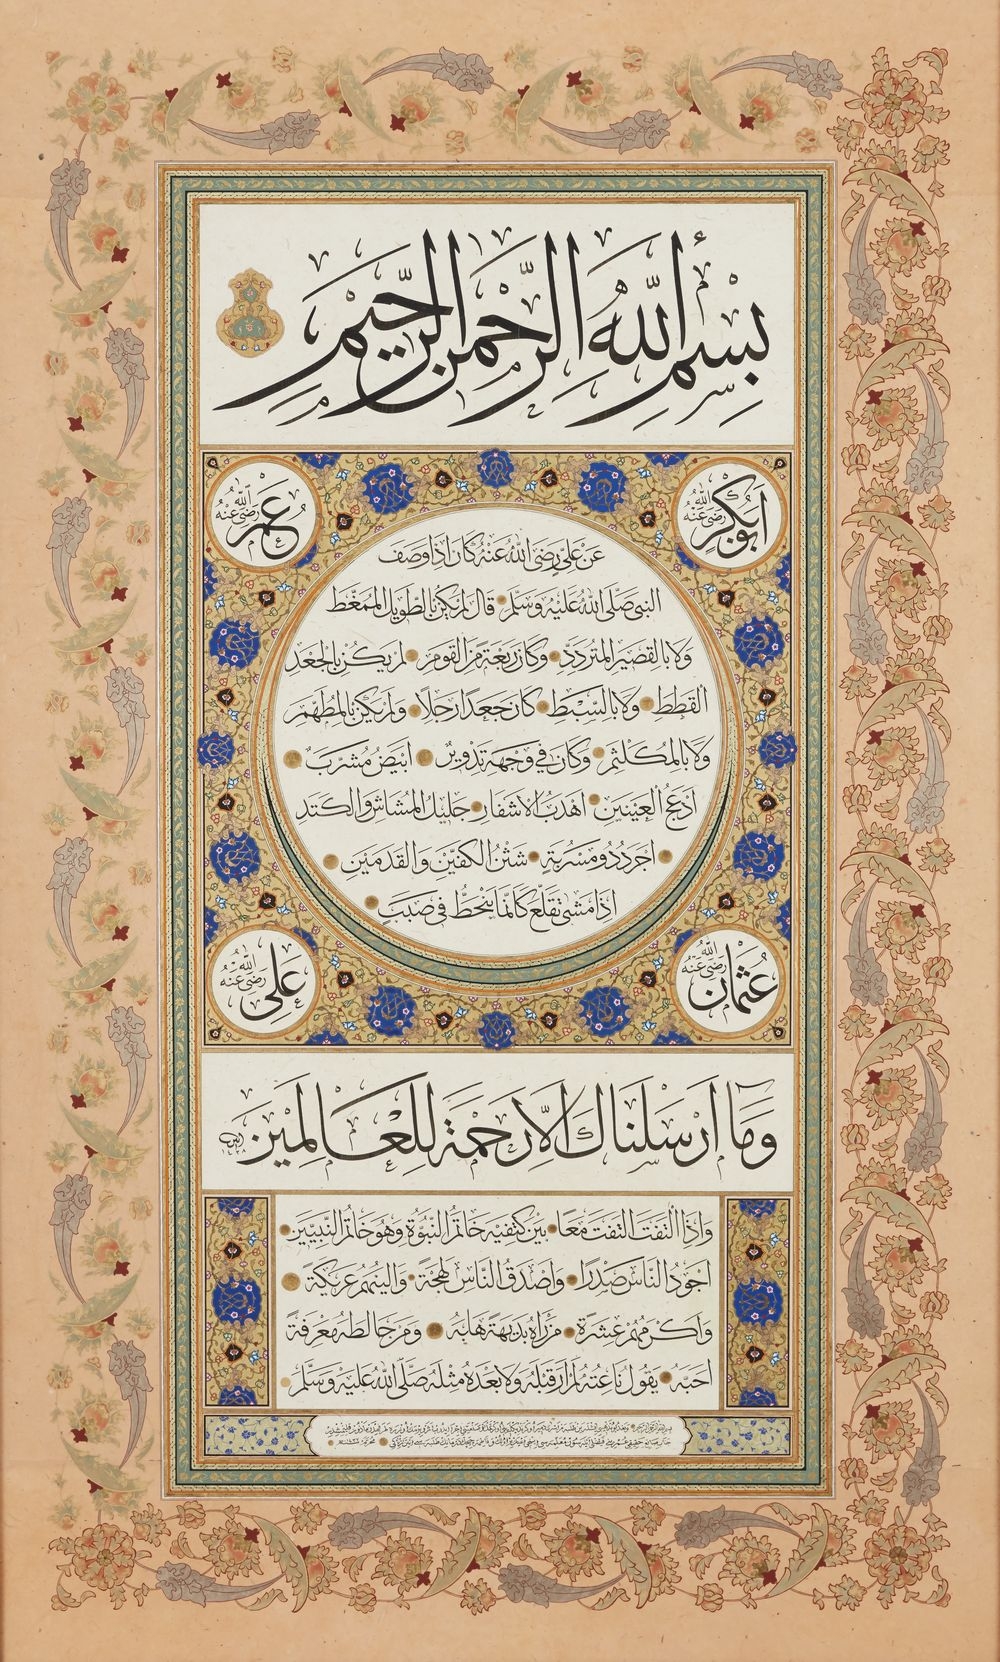 بِسْمِ اللهِ الرَّحْمنِ الرَّحِيمِ
ابُوبَكْرٍ رَضِيَ اللهُ عَنْهُ
عُمَرُ رَضِيَ اللهُ عَنْهُ
عَنْ عَلِيٍّ رَضِيَ اللهُ عَنْهُ كَانَ اِذَا وَصَفَ
النَّبِيَّ صَلَّى اللهُ عَلَيْهِ وَسَلَّمَ قَالَ لَمْ يَكُنْ بِالطَّوِيلِ الْمُمَّغِطِ
وَلَا بِالْقَصِيرِ الْمُتَرَدِّدِ وَكَانَ رَبْعَةً مِنَ الْقَوْمِ لَمْ يَكُنْ بِالْجَعْدِ
الْقَطَطِ وَلَا بِالسَّبِطِ كَانَ جَعْدًا رَجِلًا وَلَمْ يَكُنْ بِالْمُطَهَّمِ
وَلَا بِالْمُكَلْثَمِ وَكَانَ فِي وَجْهِهِ تَدْوِيرٌ اَبْيَضُ مُشْرَبٌ
اَدْعَجُ الْعَيْنَيْنِ اَهْدَبُ الْاَشْفَارِ جَلِيلُ الْمُشَاشِ وَالْكَتَدِ
اَجْرَدُ ذُو مَسْرُبَةٍ شَثْنُ الْكَفَّيْنِ وَالْقَدَمَيْنِ
اِذَا مَشَى تَقَلَّعَ كَاَنَّمَا يَنْحَطُّ فِي صَبَبٍ
عُثْمَانُ رَضِيَ اللهُ عَنْهُ
عَلِيٌّ رَضِيَ اللهُ عَنْهُ
وَمَا اَرْسَلْنَاكَ اِلَّا رَحْمَةً لِلْعَالَمِينَ
وَاِذَا الْتَفَتَ الْتَفَتَ مَعًا بَيْنَ كَتِفَيْهِ خَاتَمُ النُّبُوَّةِ وَهُوَ خَاتَمُ النَّبِيِّينَ
اَجْوَدُ النَّاسِ صَدْرًا وَاَصْدَقُ النَّاسِ لَهْجَةً وَاَلْيَنُهُمْ عَرِيكَةً
وَاَكْرَمُهُمْ عِشْرَةً مَنْ رَاٰهُ بَدِيهَةً هَابَهُ وَمَنْ خَالَطَهُ مَعْرِفَةً
اَحَبَّهُ يَقُولُ نَاعِتُهُ لَمْ اَرَ قَبْلَهُ وَلَا بَعْدَهُ مِثْلَهُ صَلَّى اللهُ عَلَيْهِ وَسَلَّمَ